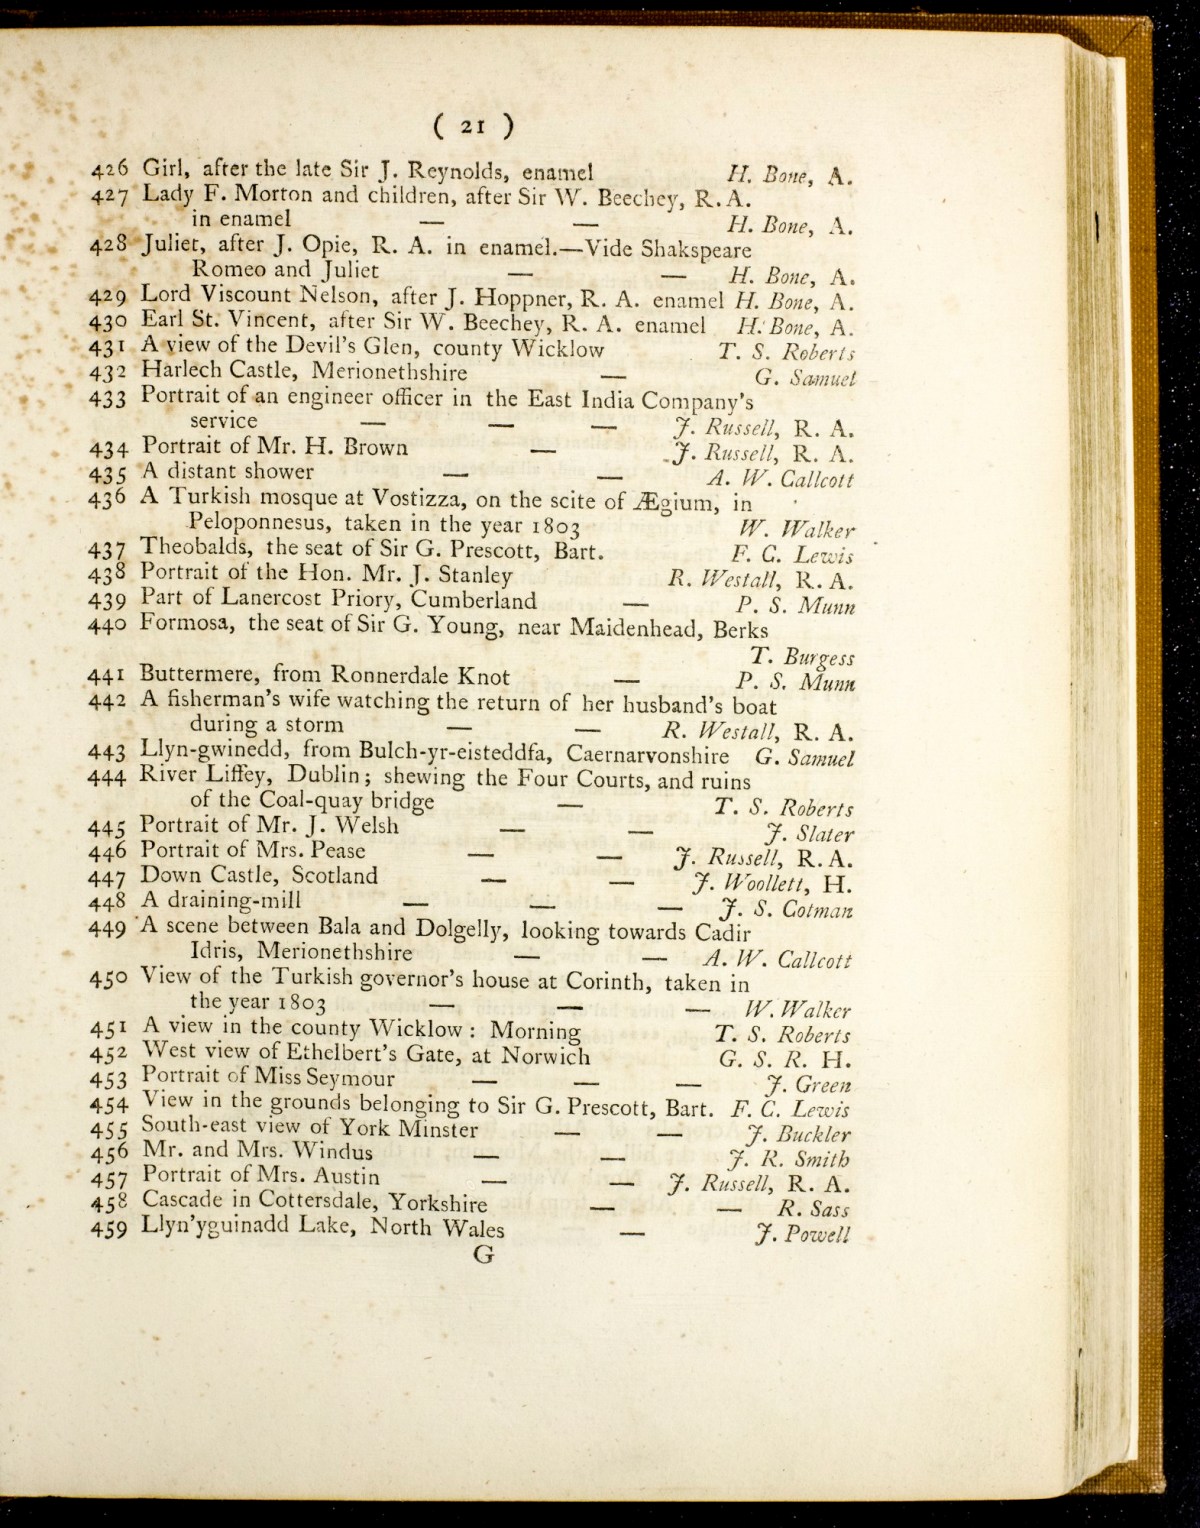 ( 21 )
426 Girl, after the late Sir J. Reynolds, enamel H. Bone, A.
427 Lady F. Morton and children, after Sir W. Beechey, R. A.
in enamel — — H. Bone, A.
428 Juliet, after J. Opie, R. A. in enamel.—Vide Shakspeare
Romeo and Juliet — — H. Bone, A.
429 Lord Viscount Nelson, after J. Hoppner, R. A. enamel H. Bone, A.
430 Earl St. Vincent, after Sir W. Beechey, R. A. enamel H. Bone, A.
431 A view of the Devil's Glen, county Wicklow T. S. Roberts
432 Harlech Castle, Merionethshire — G. Samuel
433 Portrait of an engineer officer in the East India Company's
service — — — J. Russell, R. A.
434 Portrait of Mr. H. Brown — J. Russell, R. A.
435 A distant shower — — A. W. Callcott
436 A Turkish mosque at Vostizza, on the scite of Ægium, in
Peloponnesus, taken in the year 1803 W. Walker
437 Theobalds, the seat of Sir G. Prescott, Bart. F. C. Lewis
438 Portrait of the Hon. Mr. J. Stanley R. Westall, R. A.
439 Part of Lanercost Priory, Cumberland — P. S. Munn
440 Formosa, the seat of Sir G. Young, near Maidenhead, Berks
T. Burgess
441 Buttermere, from Ronnerdale Knot — P. S. Munn
442 A fisherman's wife watching the return of her husband's boat
during a storm — — R. Westall, R. A.
443 Llyn-gwinedd, from Bulch-yr-eisteddfa, Caernarvonshire G. Samuel
444 River Liffey, Dublin; shewing the Four Courts, and ruins
of the Coal-quay bridge — T. S. Roberts
445 Portrait of Mr. J. Welsh — — J. Slater
446 Portrait of Mrs. Pease — — J. Russell, R. A.
447 Down Castle, Scotland — — J. Woollett, H.
448 A draining-mill — — — J. S. Cotman
449 A scene between Bala and Dolgelly, looking towards Cadir
Idris, Merionethshire — — A. W. Callcott
450 View of the Turkish governor's house at Corinth, taken in
the year 1803 — — — W. Walker
451 A view in the county Wicklow: Morning T. S. Roberts
452 West view of Ethelbert's Gate, at Norwich G. S. R. H.
453 Portrait of Miss Seymour — — — J. Green
454 View in the grounds belonging to Sir G. Prescott, Bart. F. C. Lewis
455 South-east view of York Minster — — J. Buckler
456 Mr. and Mrs. Windus — — J. R. Smith
457 Portrait of Mrs. Austin — — J. Russell, R. A.
458 Cascade in Cottersdale, Yorkshire — — R. Sass
459 Llyn'yguinadd Lake, North Wales — J. Powell
G